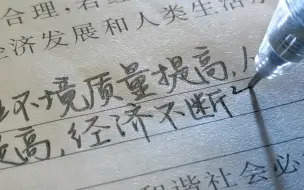 合理,
经济发展和人类生活
环境质量提高,
高,经济不断
和谐社会必